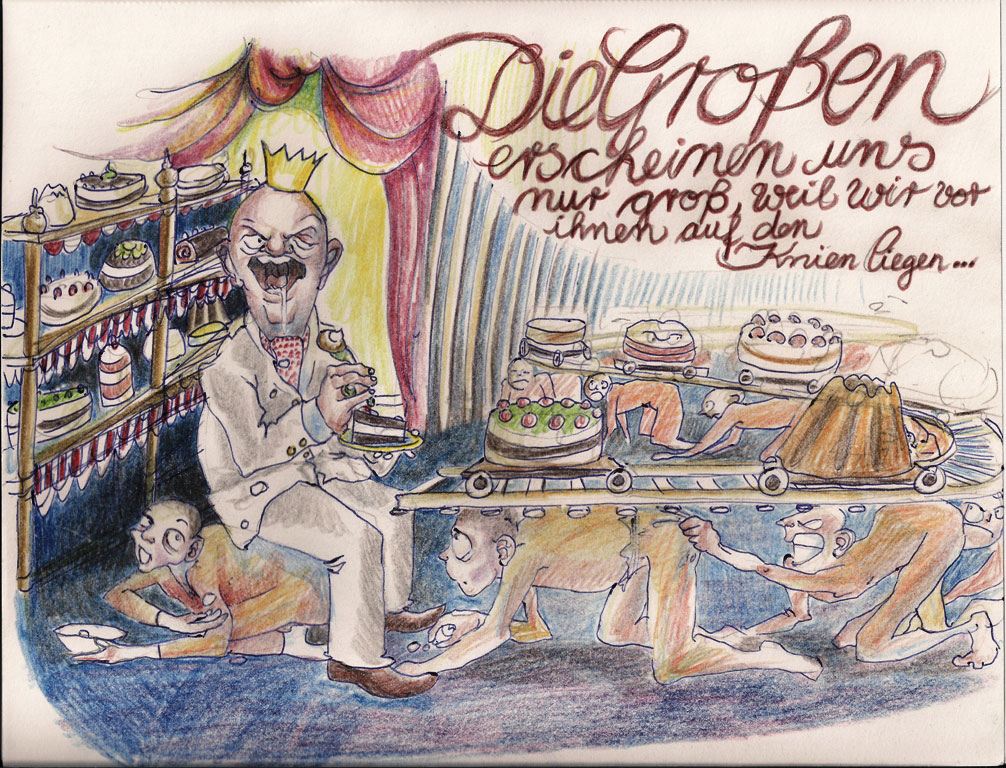 Die Großen
erscheinen uns
nur groß, weil wir vor
ihnen auf den
Knien liegen...